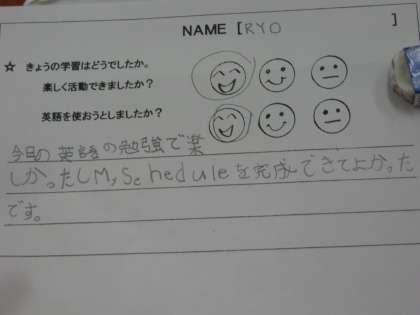 NAME [RYO ]
☆ きょうの学習はどうでしたか。
楽しく活動できましたか？
英語を使おうとしましたか？
今日の英語の勉強で楽
しかったしMy Scheduleを完成できてよかった
です。